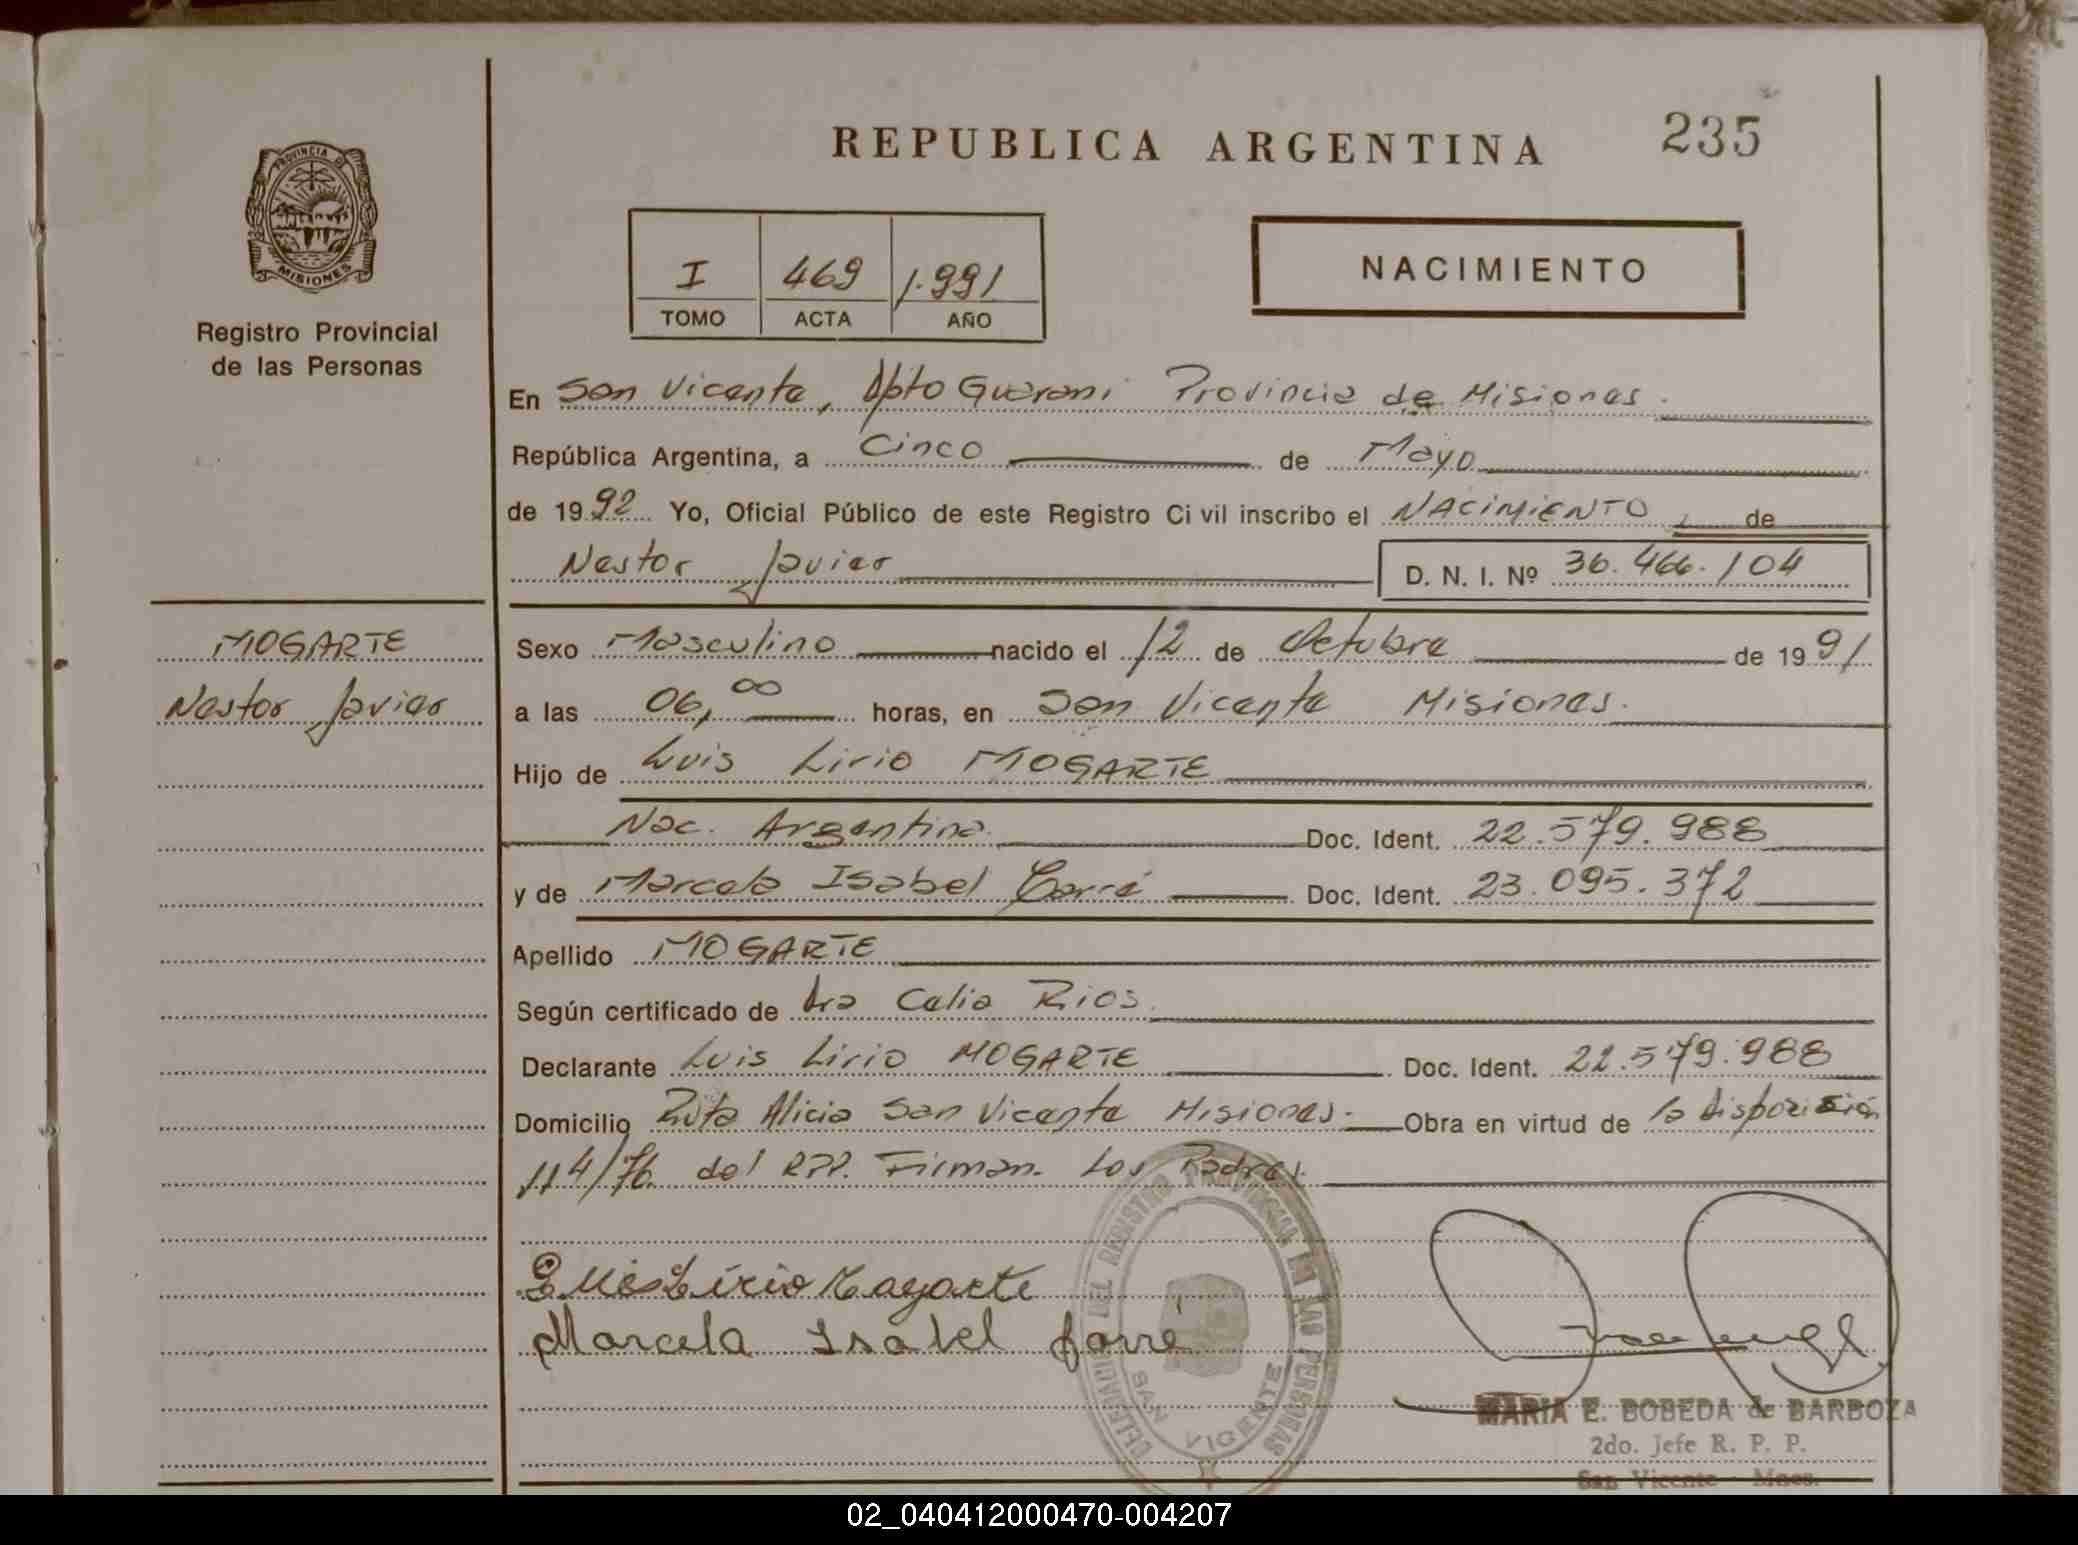 REPUBLICA ARGENTINA 235
PROVINCIA DE
MISIONES
Registro Provincial
de las Personas
I 469 1.991
TOMO ACTA AÑO
NACIMIENTO
En San Vicente, Dpto Guarani Provincia de Misiones.
República Argentina, a Cinco de Mayo
de 1992 Yo, Oficial Público de este Registro Civil inscribo el NACIMIENTO de
Nestor Javier D. N. I. Nº 36.466.104
MOGARTE
Nestor Javier
Sexo Masculino nacido el 12 de Octubre de 1991
a las 06,00 horas, en San Vicente Misiones.
Hijo de Luis Lirio MOGARTE
Nac. Argentina. Doc. Ident. 22.579.988
y de Marcela Isabel Carré Doc. Ident. 23.095.372
Apellido MOGARTE
Según certificado de Dra Celia Rios.
Declarante Luis Lirio MOGARTE Doc. Ident. 22.579.988
Domicilio Ruta Alicia San Vicente Misiones. Obra en virtud de la disposición
114/76 del RPP. Firman. Los Padres.
Luis Lirio Mogarte
Marcela Isabel Jarre
DELEGACION DEL REGISTRO PROVINCIAL DE LAS PERSONAS
SAN VICENTE
MARIA E. BOBEDA de BARBOZA
2do. Jefe R. P. P.
San Vicente - Mnes.
02_040412000470-004207